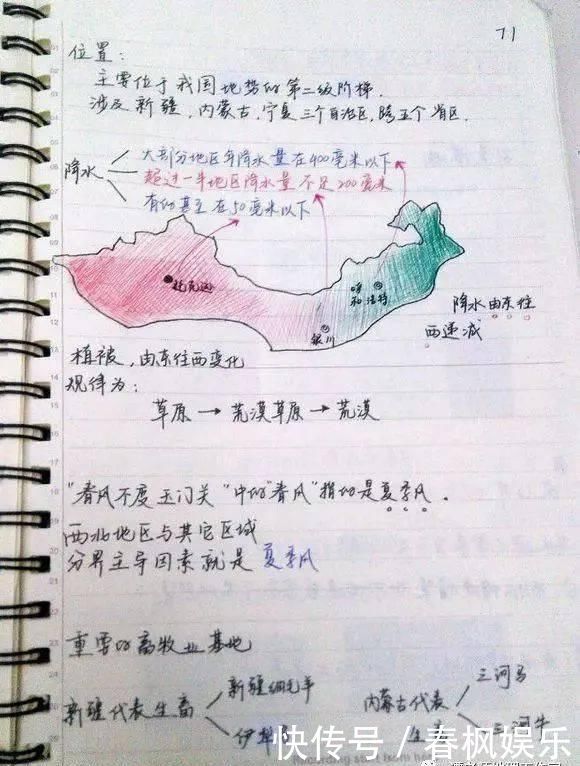 71
位置:
主要位于我国地势的第二级阶梯.
涉及新疆,内蒙古,宁夏三个自治区,跨五个省区.
降水
大部分地区年降水量在400毫米以下
超过一半地区降水量不足200毫米
有的甚至在50毫米以下
呼和浩特
银川
降水由东往
西递减
植被,由东往西变化
规律为:
草原→荒漠草原→荒漠
"春风不度玉门关"中的"春风"指的是夏季风.
西北地区与其它区域
分界主导因素就是 夏季风
重要的畜牧业基地
新疆代表牲畜
新疆细毛羊
伊犁
内蒙古代表
三河马
三河牛
快传号/春枫娱乐